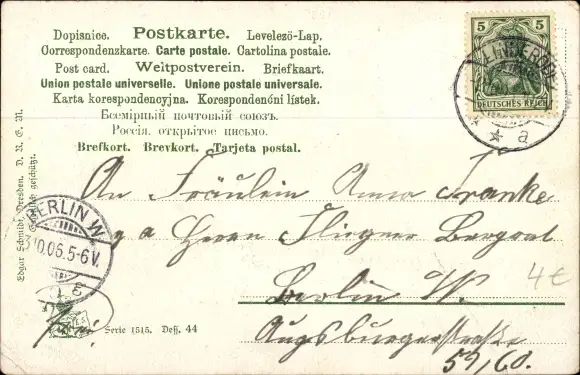 Dopisnice. Postkarte. Levelező-Lap.
Correspondenzkarte. Carte postale. Cartolina postale.
Post card. Weltpostverein. Briefkaart.
Union postale universelle. Unione postale universale.
Karta korespondencyjna. Korespondenční lístek.
Всемірный почтовый союзъ.
Россія. открытое письмо.
Brefkort. Brevkort. Tarjeta postal.
5 5
DEUTSCHES REICH
a
An Fräulein Anna Franke
Herrn Fliegner
Berlin W.
Augsburgerstraße
59/60.
4€
BERLIN W
10.06.5-6V.
Edgar Schmidt, Dresden. D. R. G. M.
Gesetzlich geschützt.
Serie 1515. Dess. 44